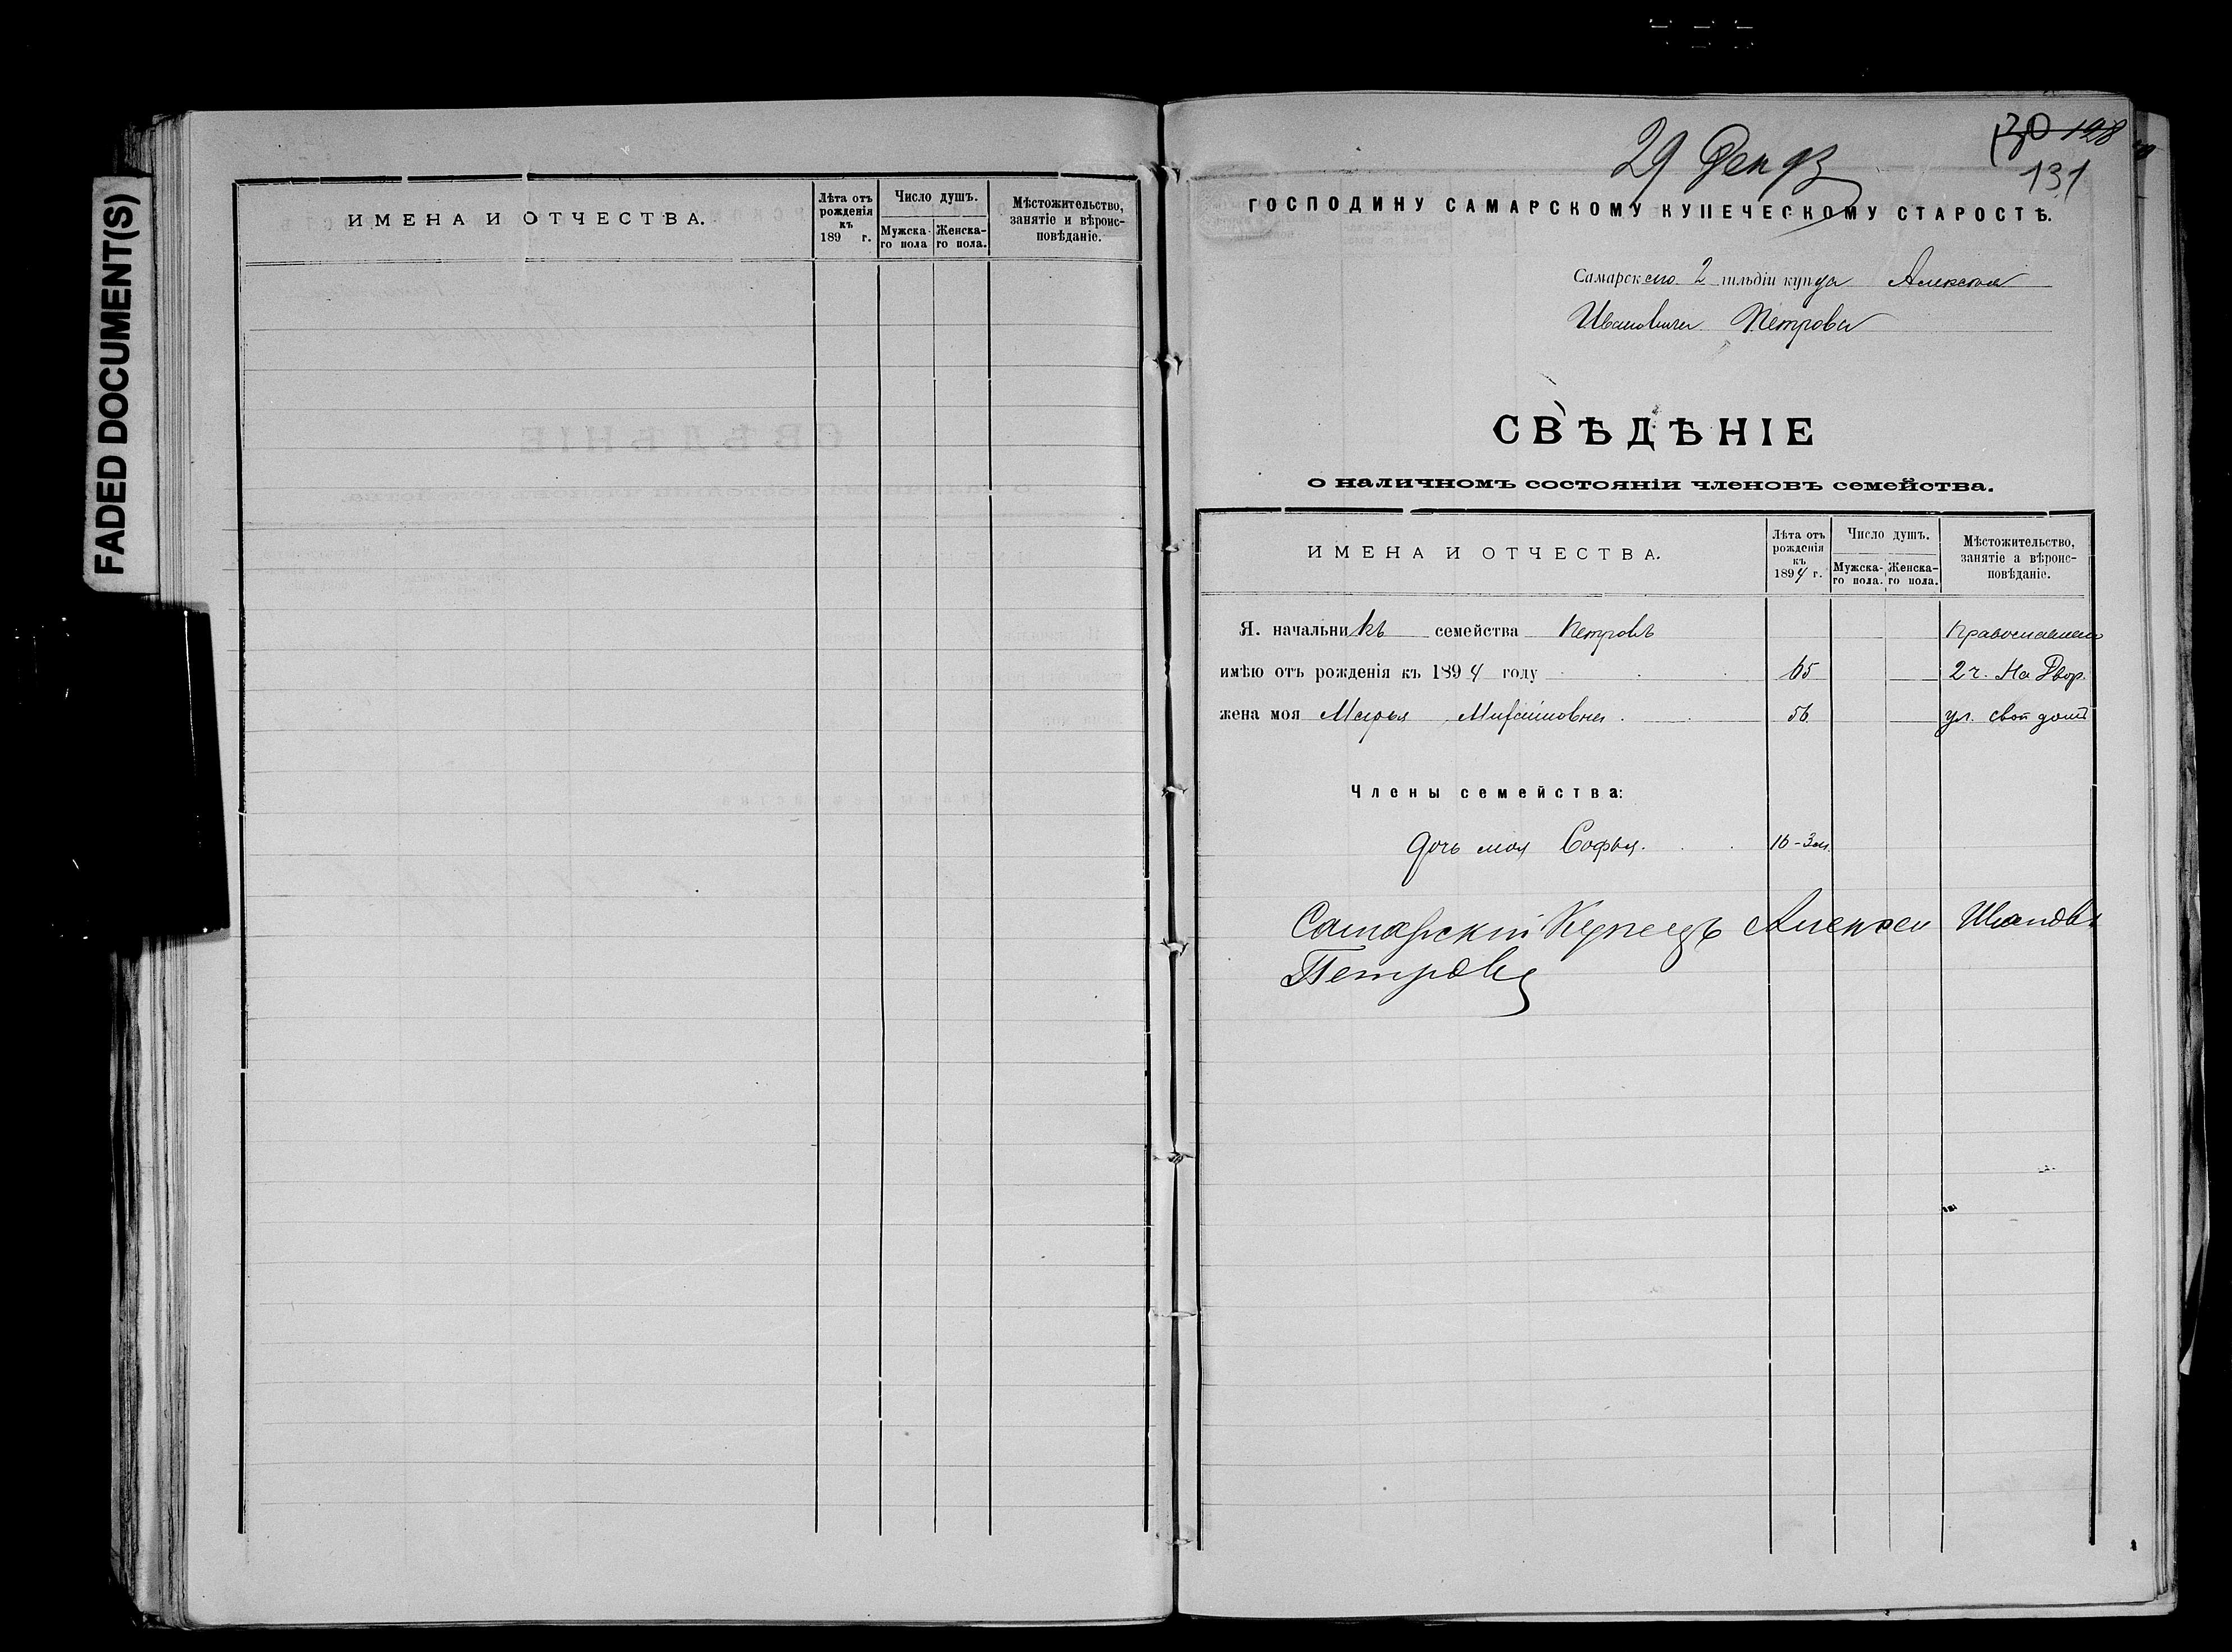 FADED DOCUMENT(S)
ИМЕНА И ОТЧЕСТВА.
Лѣта отъ рожденія къ 189 г.
Число душъ.
Мужска-го пола
Женска-го пола.
Мѣстожительство, занятіе и вѣроис-повѣданіе.
29 Дек 93
130 128
131
ГОСПОДИНУ САМАРСКОМУ КУПЕЧЕСКОМУ СТАРОСТѢ.
Самарскаго 2 гильдіи купца Алексея
Ивановича Петрова
СВѢДѢНІЕ
о наличномъ состояніи членовъ семейства.
ИМЕНА И ОТЧЕСТВА.
Лѣта отъ рожденія къ 1894 г.
Число душъ.
Мужска-го пола.
Женска-го пола.
Мѣстожительство, занятіе а вѣроис-повѣданіе.
Я. начальникъ семейства Петровъ
имѣю отъ рожденія къ 1894 году 65 2 ч. На Двор.
жена моя Марья Михайловна. 56 ул. свой домъ
Члены семейства:
дочь моя Софья. 16 - 3 м.
Самарский Купецъ Алексей Ивановъ
Петровъ